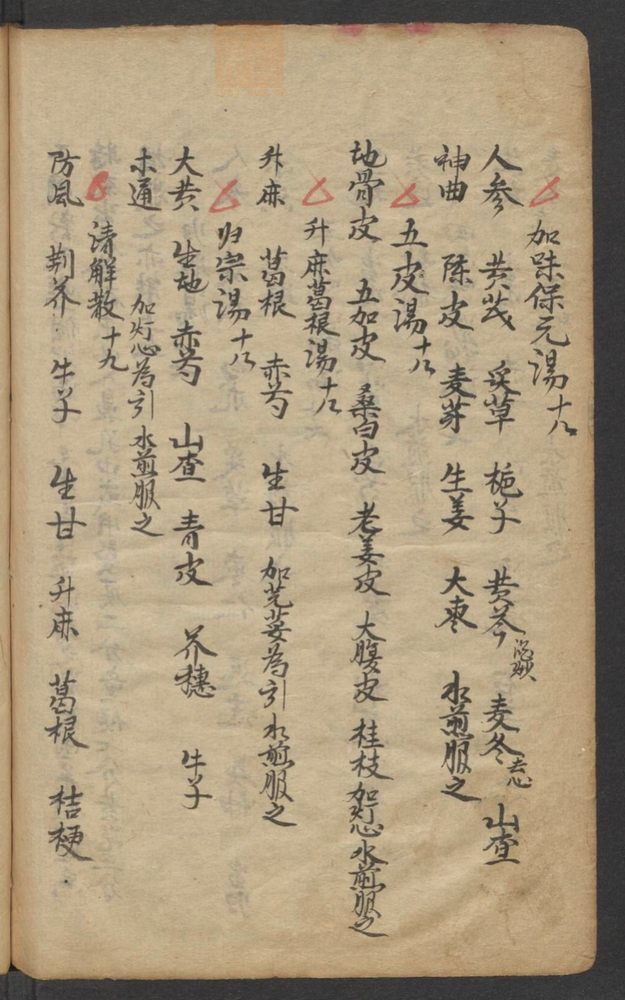 加味保元湯十八
人参 黄芪 炙草 梔子 黄芩 酒炒 麦冬 去心 山查
神曲 陈皮 麦芽 生姜 大枣 水煎服之
五皮湯十八
地骨皮 五加皮 桑白皮 老姜皮 大腹皮 桂枝 加灯心水煎服之
升麻葛根湯十八
升麻 葛根 赤芍 生甘 加芫荽為引水煎服之
归宗湯十八
大黄 生地 赤芍 山查 青皮 芥穗 牛子
木通 加灯心為引水煎服之
清解散十九
防風 荆芥 牛子 生甘 升麻 葛根 桔梗